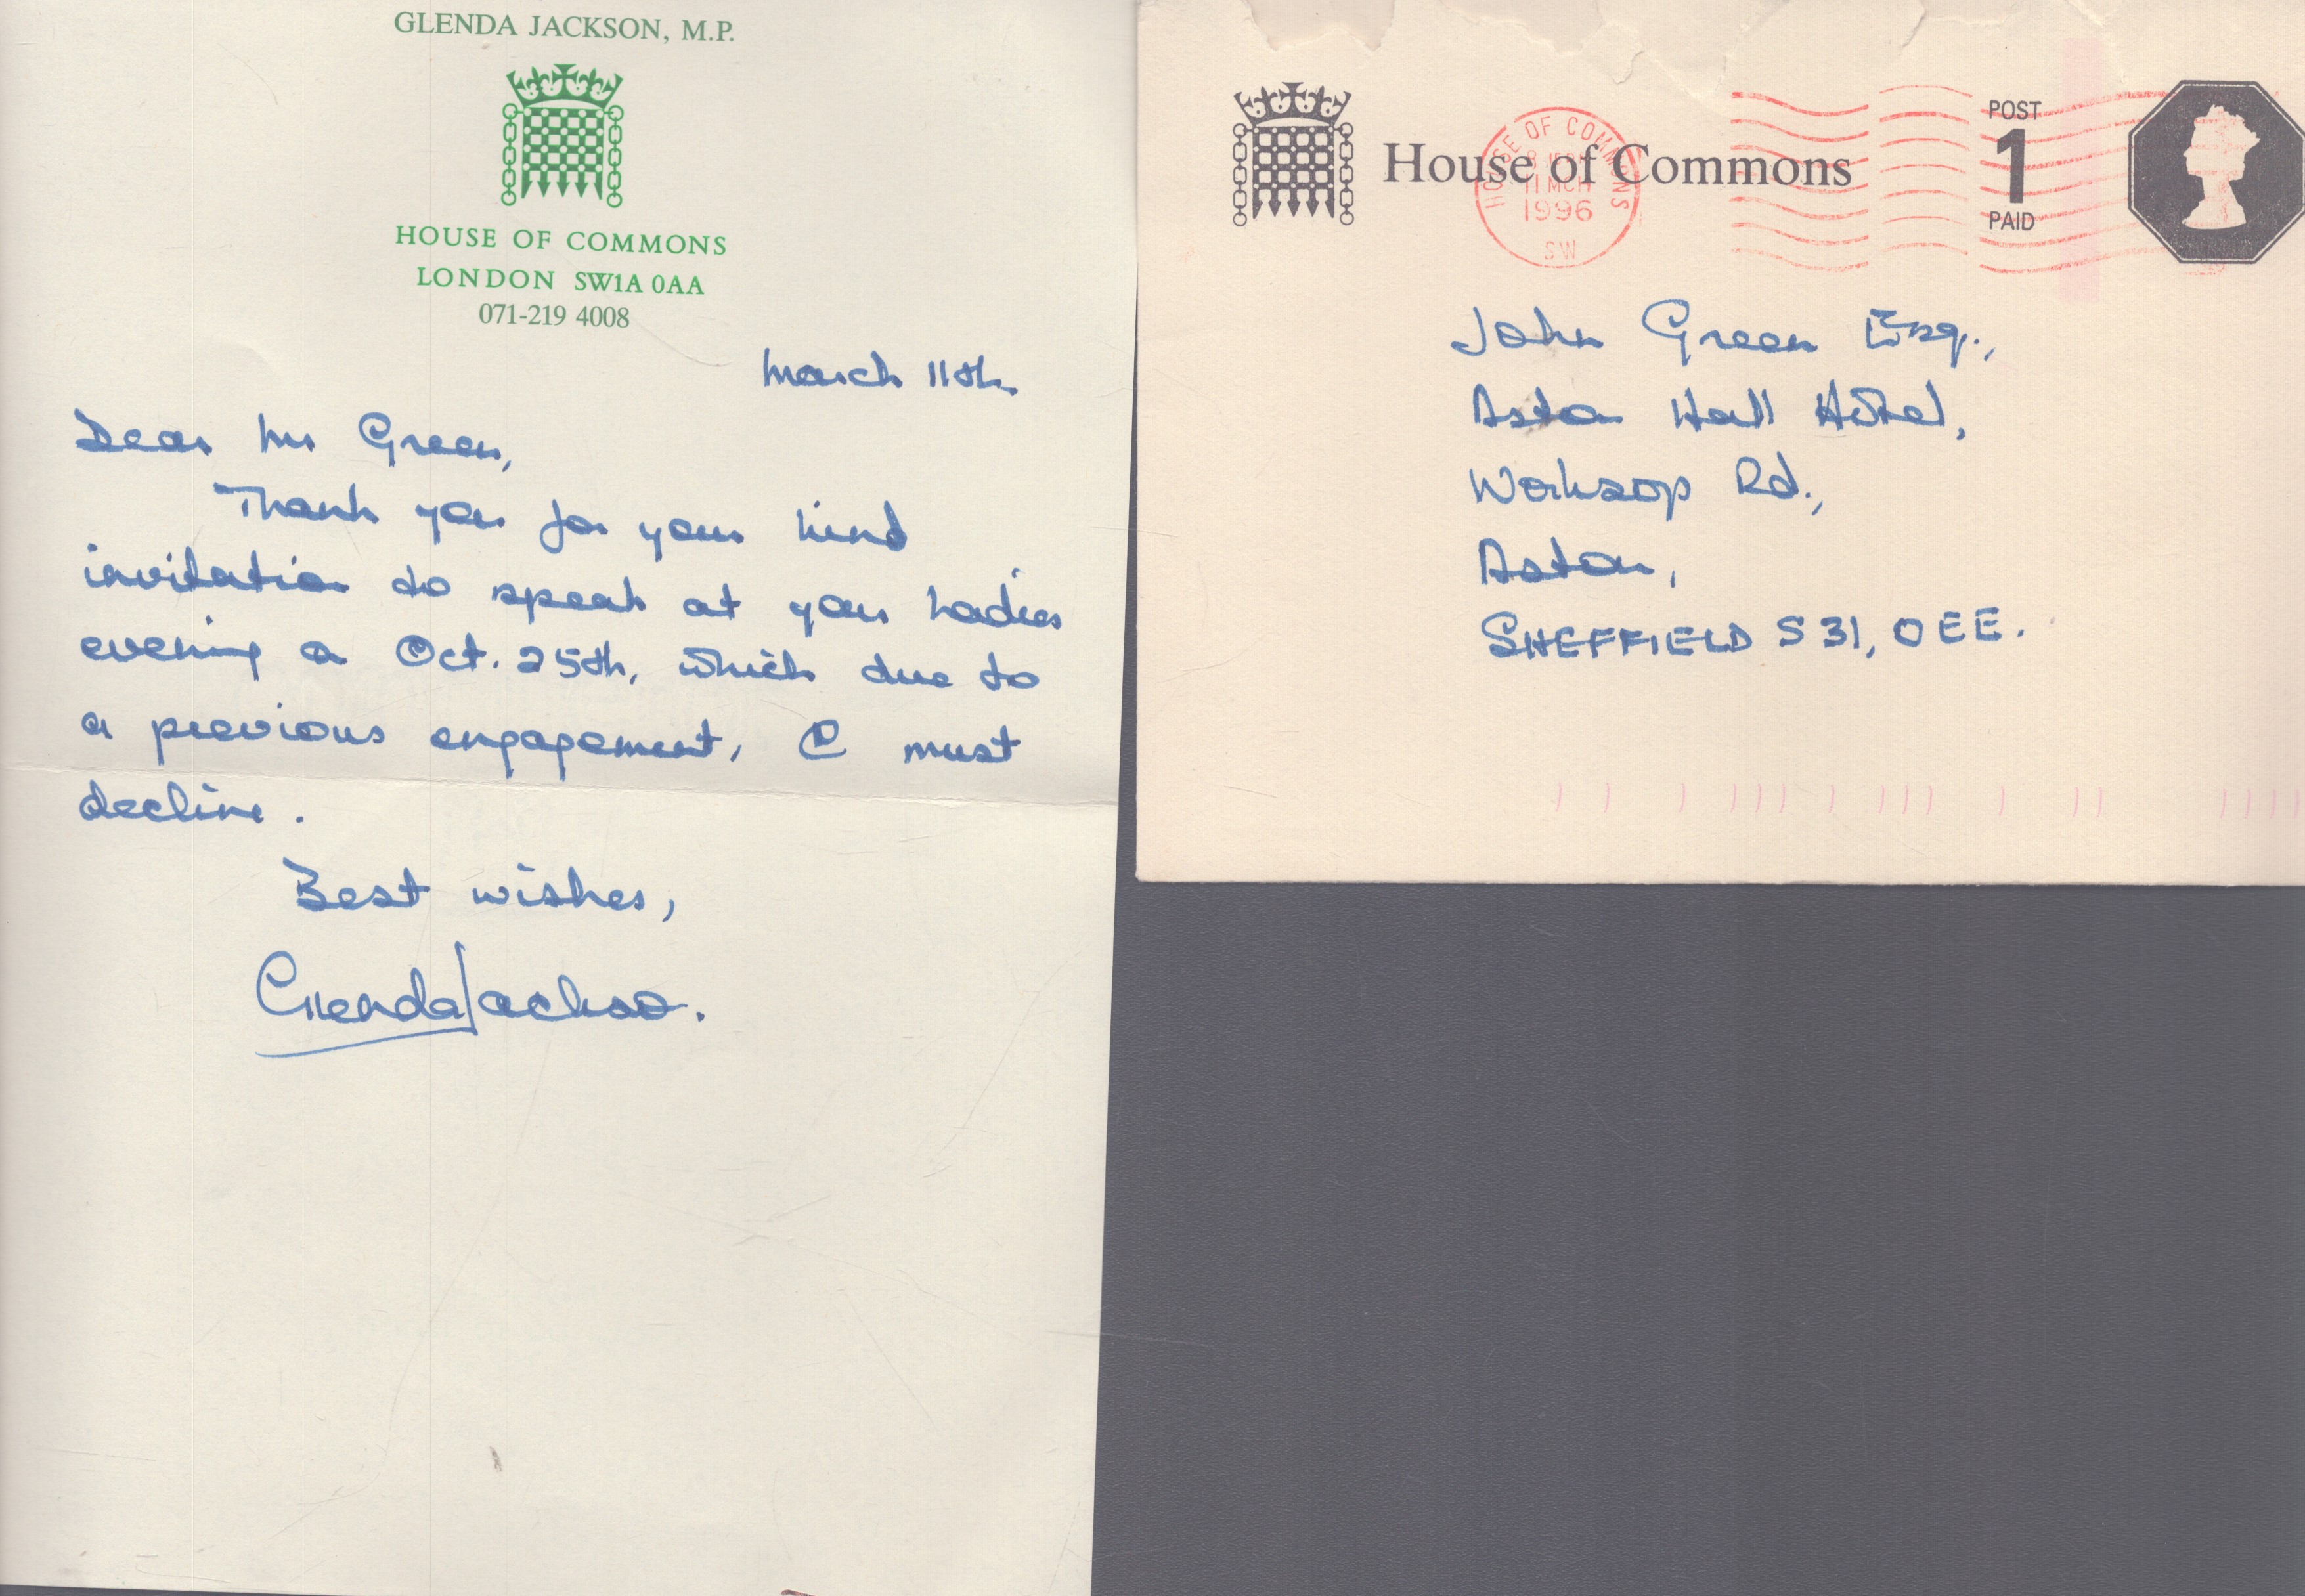 GLENDA JACKSON, M.P.
HOUSE OF COMMONS
LONDON SW1A 0AA
071-219 4008
March 11th.
Dear Mr Green,
Thank you for your kind
invitation to speak at your Ladies
evening on Oct. 25th, which due to
a previous engagement, I must
decline.
Best wishes,
Glenda Jackson.
House of Commons
HOUSE OF COMMONS
11 MCH
1996
SW
POST
1
PAID
John Green Esq.,
Aston Hall Hotel,
Worksop Rd.,
Aston,
SHEFFIELD S31, 0EE.